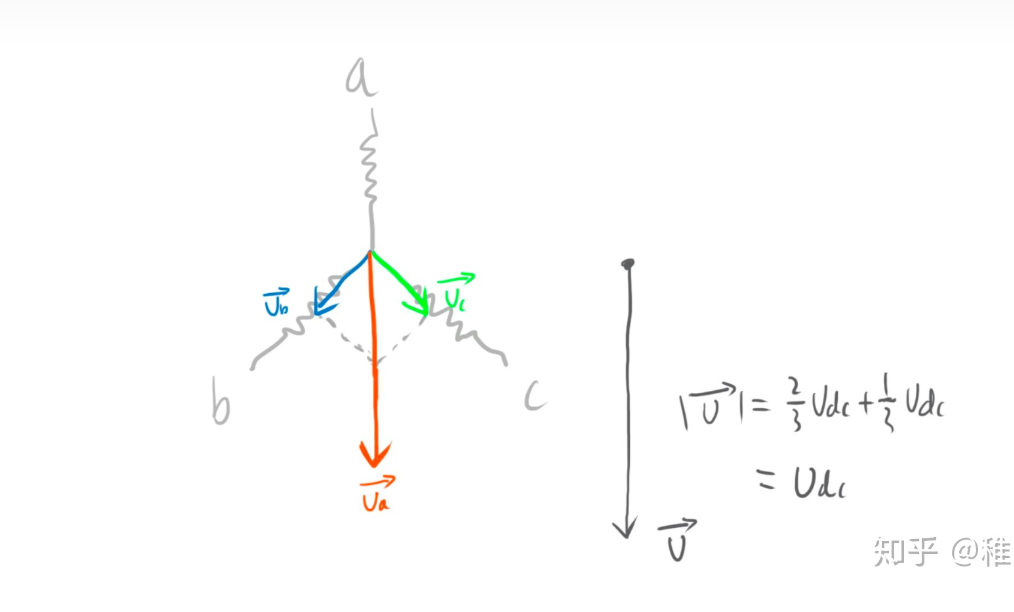 a
U⃗b
U⃗c
b
c
U⃗a
|U⃗| = 2/3 Udc + 1/3 Udc
= Udc
U⃗
知乎 @稚